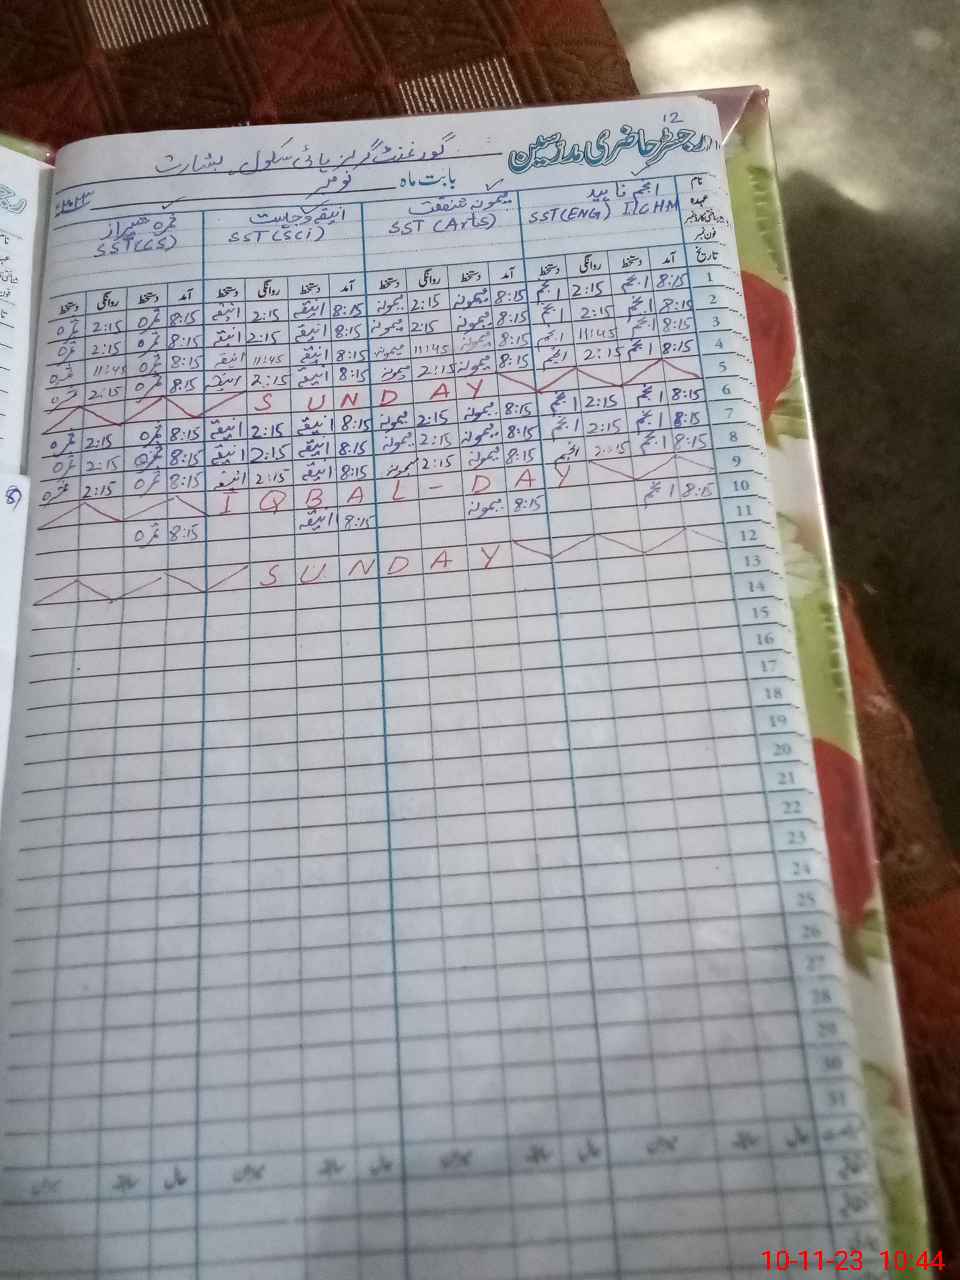 12
رجسٹر حاضری مدرسین گورنمنٹ گرلز ہائی سکول بشارت
بابت ماہ نومبر
نام
عہدہ
فون نمبر
تاریخ
SST(ENG) I/C HM
میمونہ شفقت
SST (Arts)
انیقہ وجاہت
SST (Sci)
SST(CS)
آمد دستخط روانگی دستخط آمد دستخط روانگی دستخط آمد دستخط روانگی دستخط آمد دستخط روانگی دستخط
1 8:15 انجم 2:15 انجم 8:15 میمونہ 2:15 میمونہ 8:15 انیقہ 2:15 انیقہ 8:15 2:15
2 8:15 انجم 2:15 انجم 8:15 میمونہ 2:15 میمونہ 8:15 انیقہ 2:15 انیقہ 8:15 2:15
3 8:15 انجم 11:45 انجم 8:15 میمونہ 11:45 میمونہ 8:15 انیقہ 11:45 انیقہ 8:15 11:45
4 8:15 انجم 2:15 انجم 8:15 میمونہ 2:15 میمونہ 8:15 انیقہ 2:15 انیقہ 8:15 2:15
5 SUNDAY
6 8:15 انجم 2:15 انجم 8:15 میمونہ 2:15 میمونہ 8:15 انیقہ 2:15 انیقہ 8:15 2:15
7 8:15 انجم 2:15 انجم 8:15 میمونہ 2:15 میمونہ 8:15 انیقہ 2:15 انیقہ 8:15 2:15
8 8:15 انجم 2:15 انجم 8:15 میمونہ 2:15 میمونہ 8:15 انیقہ 2:15 انیقہ 8:15 2:15
9 IQBAL-DAY
10 8:15 انجم 8:15 میمونہ 8:15 انیقہ 8:15
11
12 SUNDAY
13
14
15
16
17
18
19
20
21
22
23
24
25
26
27
28
29
30
31
10-11-23 10:44